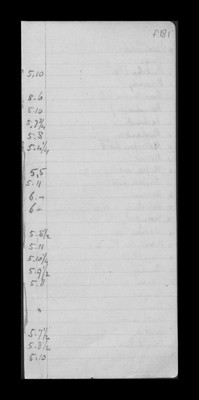 f.181
5.10
8.6
5.10
5.7¾
5.8
5.4¼
5.5
5.11
6.-
6-
5.8½
5.11
5.10¼
5.9½
5.8
"
5.7½
5.8½
5.10